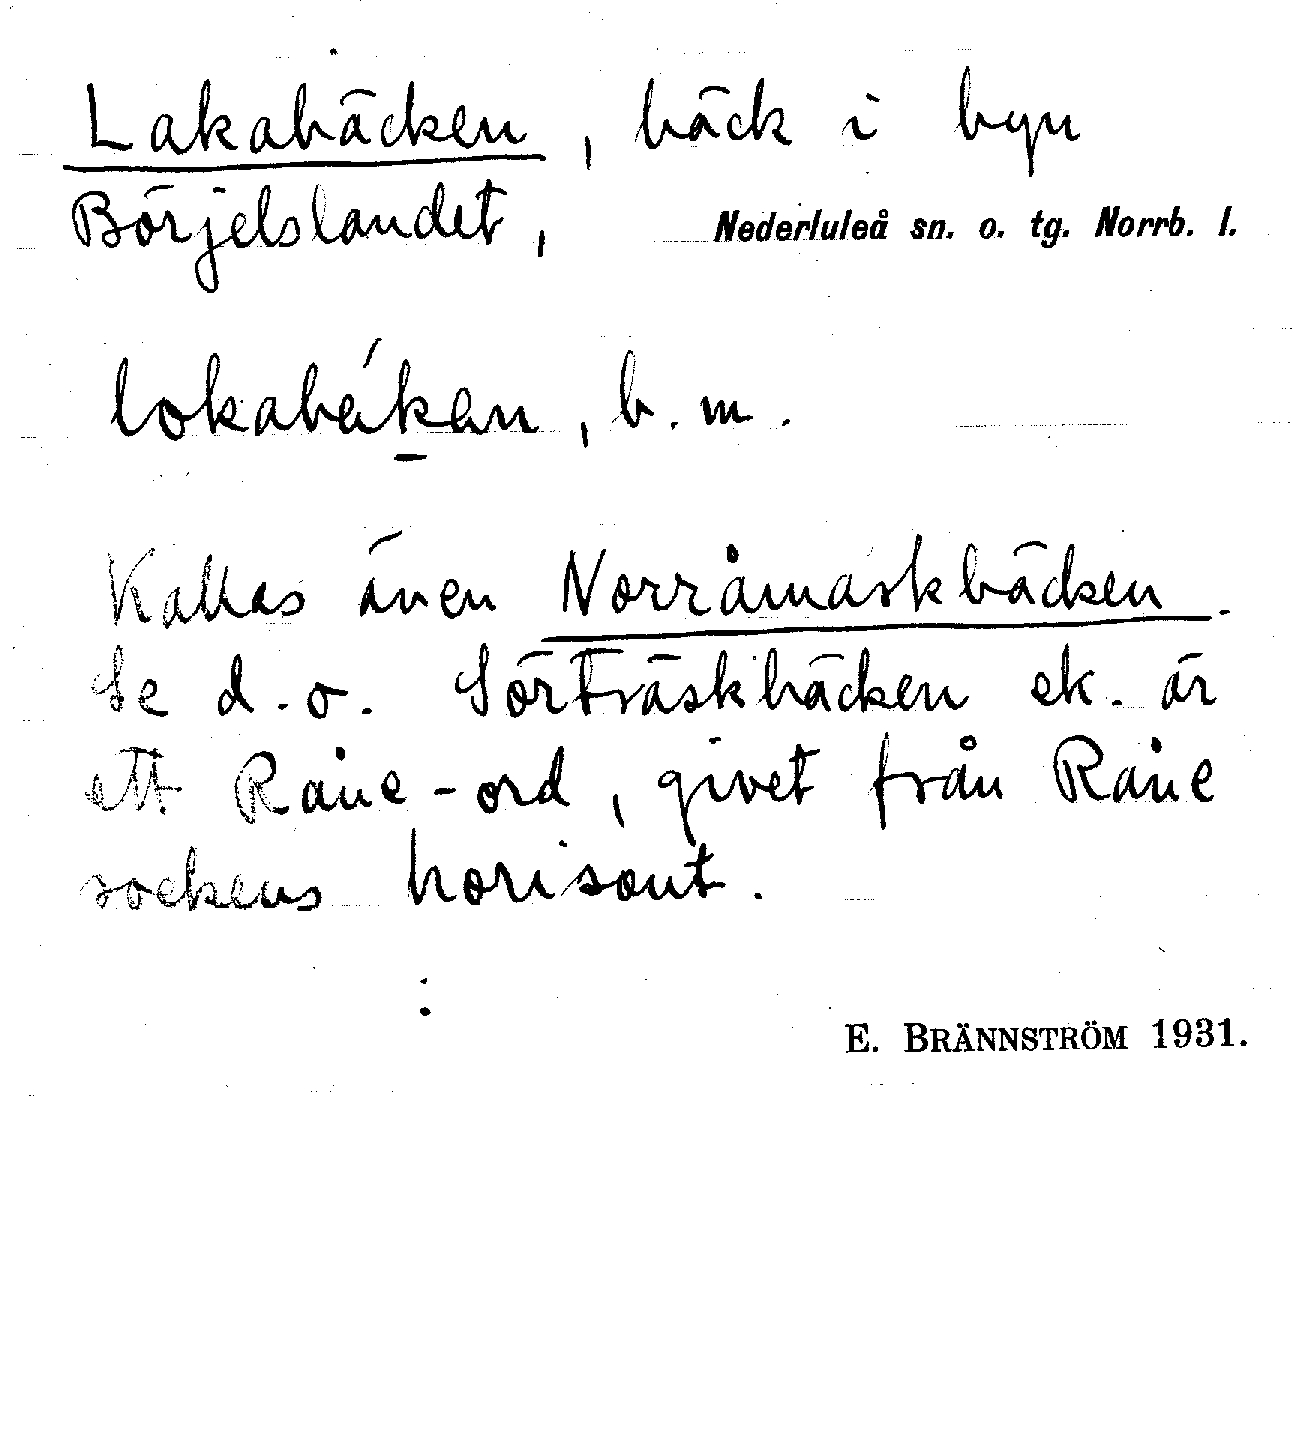 Lakabäcken, bäck i byn
Börjelslandet, Nederluleå sn. o. tg. Norrb. l.
lokabékan, b. m.
Kallas även Norråmarkbäcken.
Se d. o. Sörträskbäcken ek. är
ett Råne-ord, givet från Råne
sockens horisont.
E. BRÄNNSTRÖM 1931.